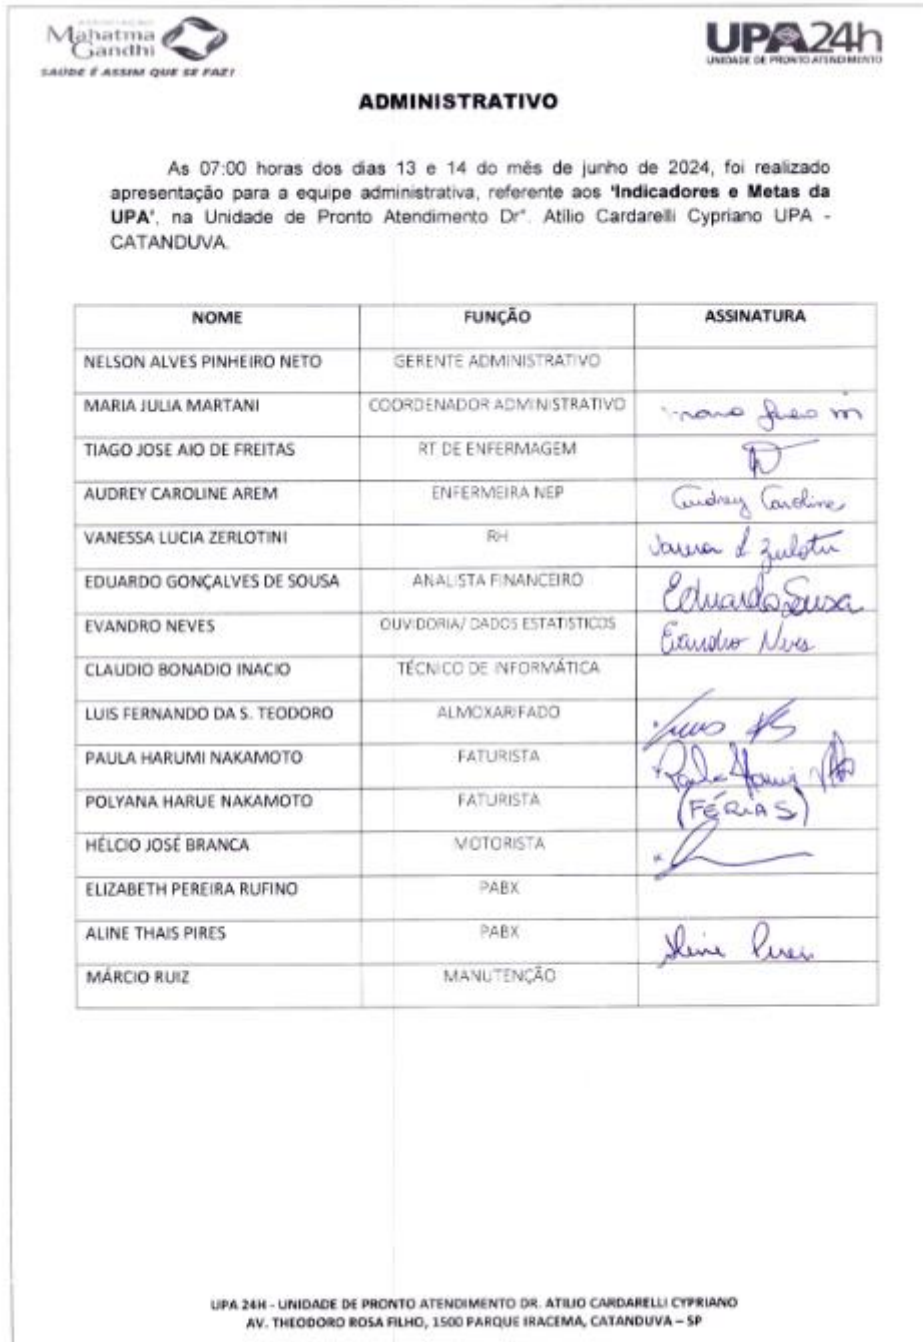 ASSOCIAÇÃO
Mahatma
Gandhi
SAÚDE É ASSIM QUE SE FAZ!
UPA24h
UNIDADE DE PRONTO ATENDIMENTO
ADMINISTRATIVO
As 07:00 horas dos dias 13 e 14 do mês de junho de 2024, foi realizado
apresentação para a equipe administrativa, referente aos "Indicadores e Metas da
UPA", na Unidade de Pronto Atendimento Dr°. Atílio Cardarelli Cypriano UPA -
CATANDUVA.
NOME FUNÇÃO ASSINATURA
NELSON ALVES PINHEIRO NETO GERENTE ADMINISTRATIVO
MARIA JULIA MARTANI COORDENADOR ADMINISTRATIVO
TIAGO JOSE AIO DE FREITAS RT DE ENFERMAGEM
AUDREY CAROLINE AREM ENFERMEIRA NEP Audrey Caroline
VANESSA LUCIA ZERLOTINI RH
EDUARDO GONÇALVES DE SOUSA ANALISTA FINANCEIRO Eduardo Sousa
EVANDRO NEVES OUVIDORIA/ DADOS ESTATISTICOS Evandro Neves
CLAUDIO BONADIO INACIO TÉCNICO DE INFORMÁTICA
LUIS FERNANDO DA S. TEODORO ALMOXARIFADO
PAULA HARUMI NAKAMOTO FATURISTA
POLYANA HARUE NAKAMOTO FATURISTA (FÉRIAS)
HÉLCIO JOSÉ BRANCA MOTORISTA
ELIZABETH PEREIRA RUFINO PABX
ALINE THAIS PIRES PABX Aline Pires
MÁRCIO RUIZ MANUTENÇÃO
UPA 24H - UNIDADE DE PRONTO ATENDIMENTO DR. ATILIO CARDARELLI CYPRIANO
AV. THEODORO ROSA FILHO, 1500 PARQUE IRACEMA, CATANDUVA – SP